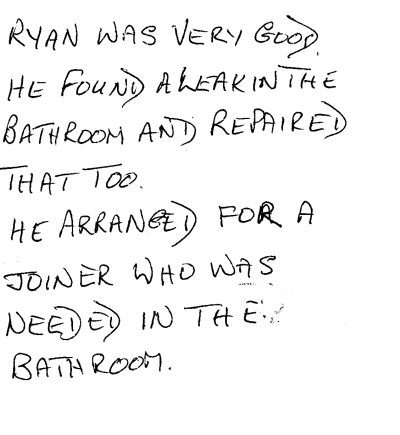 RYAN WAS VERY GOOD.
HE FOUND A LEAK IN THE
BATHROOM AND REPAIRED
THAT TOO.
HE ARRANGED FOR A
JOINER WHO WAS
NEEDED IN THE
BATHROOM.